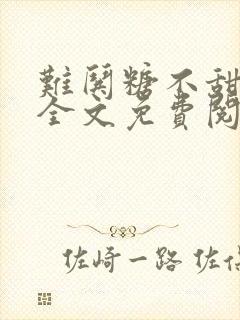 難關糖不甜
全文免費閱
佐崎一路 佐佰